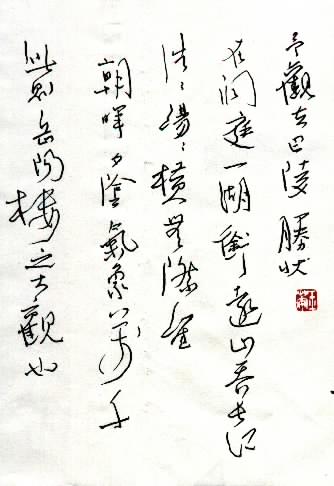 予觀夫巴陵勝狀
在洞庭一湖銜遠山吞長江
浩浩湯湯橫無際崖
朝暉夕陰氣象萬千
此則岳陽樓之大觀也